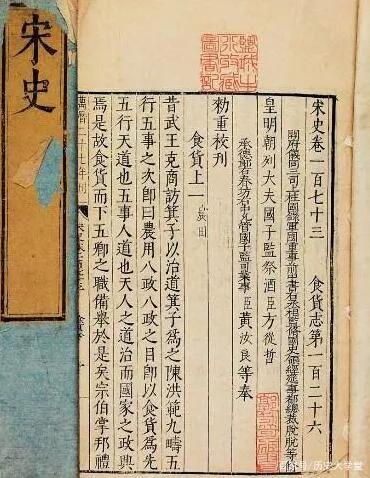 宋史
宋史卷一百七十三 食貨志第一百二十六
開府儀同三司上柱國錄軍國重事前中書右丞相監修國史領經筵事都總裁脫脫等
皇明朝列大夫國子監祭酒臣方從哲
承德郎右春坊右中允管國子監司業事臣黃汝良等奉
勑重校刊
食貨上一 農田
昔武王克商訪箕子以治道箕子為之陳洪範九疇五
行五事之次即曰農用八政八政之目即以食貨爲先
五行天道也五事人道也天人之道治而國家之政興
焉是故食貨而下五卿之職備舉於是矣宗伯掌邦禮
萬曆二十七年刊
历史大学堂